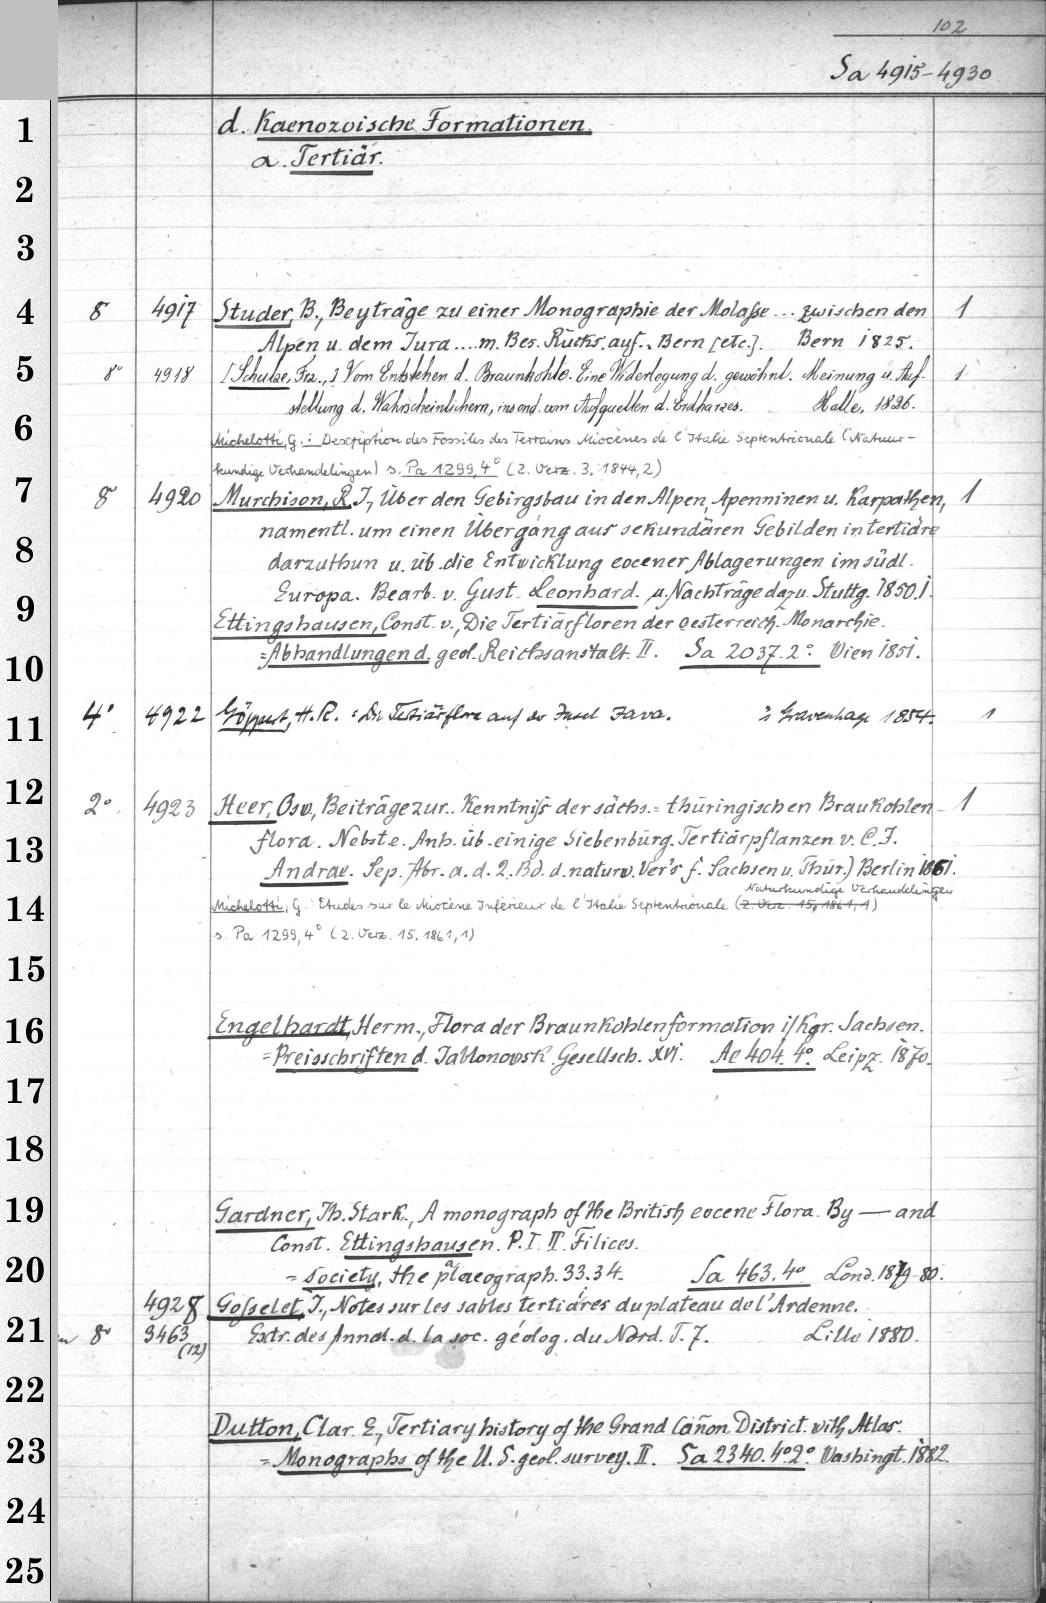 102
Sa 4915-4930
1
d. Kaenozoische Formationen.
a. Tertiär.
2
3
4
8 4917 Studer, B., Beyträge zu einer Monographie der Molaſse ... zwischen den 1
Alpen u. dem Jura .... m. Bes. Rücks. auf. Bern [etc.]. Bern 1825.
5
8° 4918 [Schulze, Frz.,] Vom Entstehen d. Braunkohle. Eine Widerlegung d. gewöhnl. Meinung u. Auf- 1
stellung d. Wahrscheinlichern, insond. vom Aufquellen d. Erdharzes. Halle, 1826.
6
Michelotti, G.: Description des Fossiles des Terrains Miocènes de l'Italie Septentrionale (Natuur-
kundige Verhandelingen) s. Pa 1299, 4° (2. Verz. 3. 1844, 2)
7
8 4920 Murchison, R. I., Über den Gebirgsbau in den Alpen, Apenninen u. Karpathen, 1
namentl. um einen Übergang aus sekundären Gebilden in tertiäre
8
darzuthun u. üb. die Entwicklung eocener Ablagerungen im südl.
Europa. Bearb. v. Gust. Leonhard. u. Nachträge dazu. Stuttg. 1850. 1.
9
Ettingshausen, Const. v., Die Tertiärfloren der oesterreich. Monarchie.
10
=Abhandlungen d. geol. Reichsanstalt. II. Sa 2037. 2° Wien 1851.
11
4° 4922 Göppert, H. R.: Die Tertiärflora auf der Insel Java. 's Gravenhage 1854. 1
12
2° 4923 Heer, Osw., Beiträge zur.. Kenntniſs der sächs.=thüringischen Braukohlen- 1
13
flora. Nebst e. Anh. üb. einige Siebenbürg. Tertiärpflanzen v. C. J.
Andrae. Sep. Abr. a. d. 2. Bd. d. naturw. Ver's f. Sachsen u. Thür.) Berlin 1861.
Naturkundige Verhandelingen
14
Michelotti, G. Etudes sur le Miocène Inférieur de l'Italie Septentrionale (2. Verz. 15, 1861, 1)
s. Pa 1299, 4° (2. Verz. 15. 1861, 1)
15
16
Engelhardt, Herm., Flora der Braunkohlenformation i/Kgr. Sachsen.
=Preisschriften d. Jablonowsk. Gesellsch. XVI. Ac 404. 4°. Leipz. 1870.
17
18
19
Gardner, Th. Stark., A monograph of the British eocene Flora. By — and
Const. Ettingshausen. P. I. II. Filices.
20
=Society, the palaeograph. 33.34. Sa 463. 4° Lond. 1879-80.
4928 Goſselet, J., Notes sur les sables tertiäres du plateau de l'Ardenne.
21
8° 3463 Extr. des Annal. d. la soc. géolog. du Nord. T. 7. Lille 1880.
(12)
22
Dutton, Clar. E., Tertiary history of the Grand Cañon District. with Atlas.
23
=Monographs of the U. S. geol. survey. II. Sa 2340. 4°.2° Washingt. 1882.
24
25